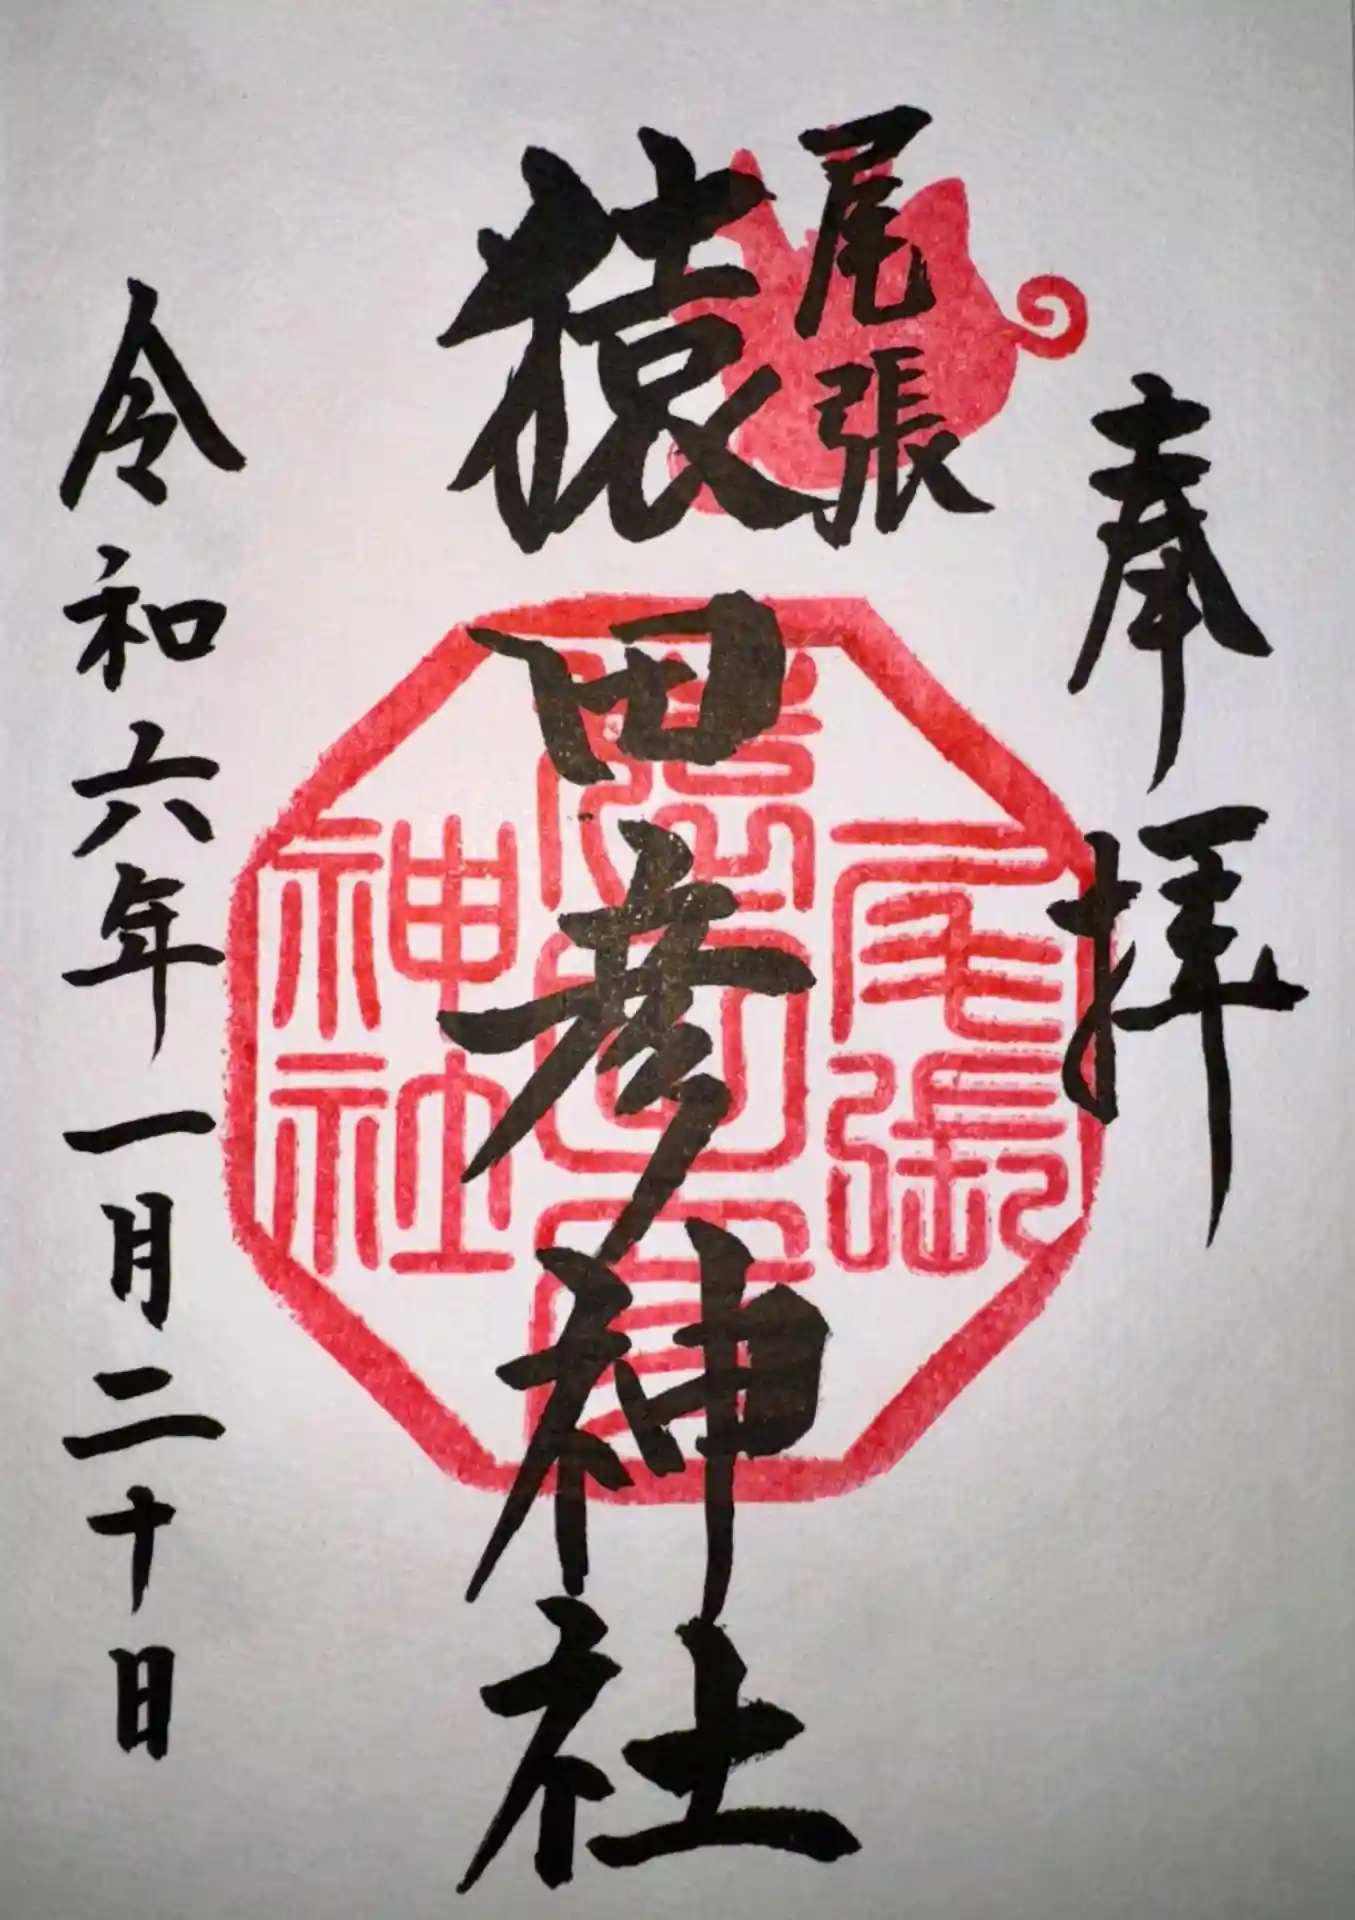 奉拝
尾張
猿田彦神社
尾張
猿田彦
神社
令和六年一月二十日